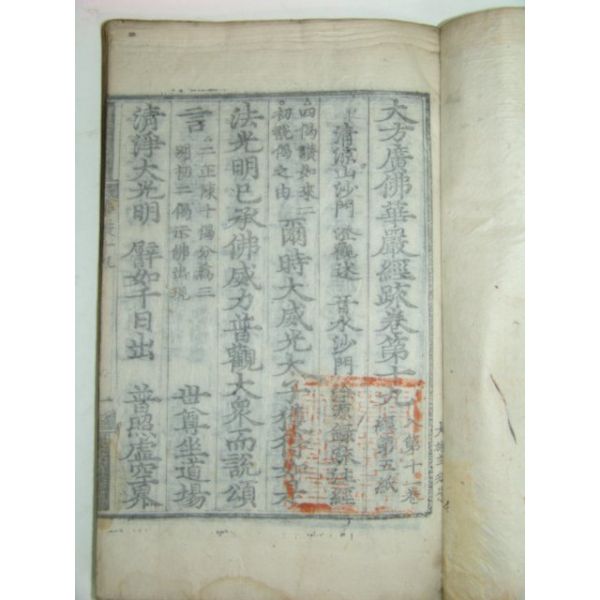 大方廣佛華嚴經疏卷第十九
入第十一卷
經第五紙
清涼山沙門 澄觀述 晉水沙門 淨源錄疏注經
四偈讚如來二
初說偈之由
爾時大威光太子獲得如是
法光明已承佛威力普觀大衆而說頌
言
二正陳十偈分爲三
世尊坐道場
清淨大光明 譬如千日出 普照虛空界